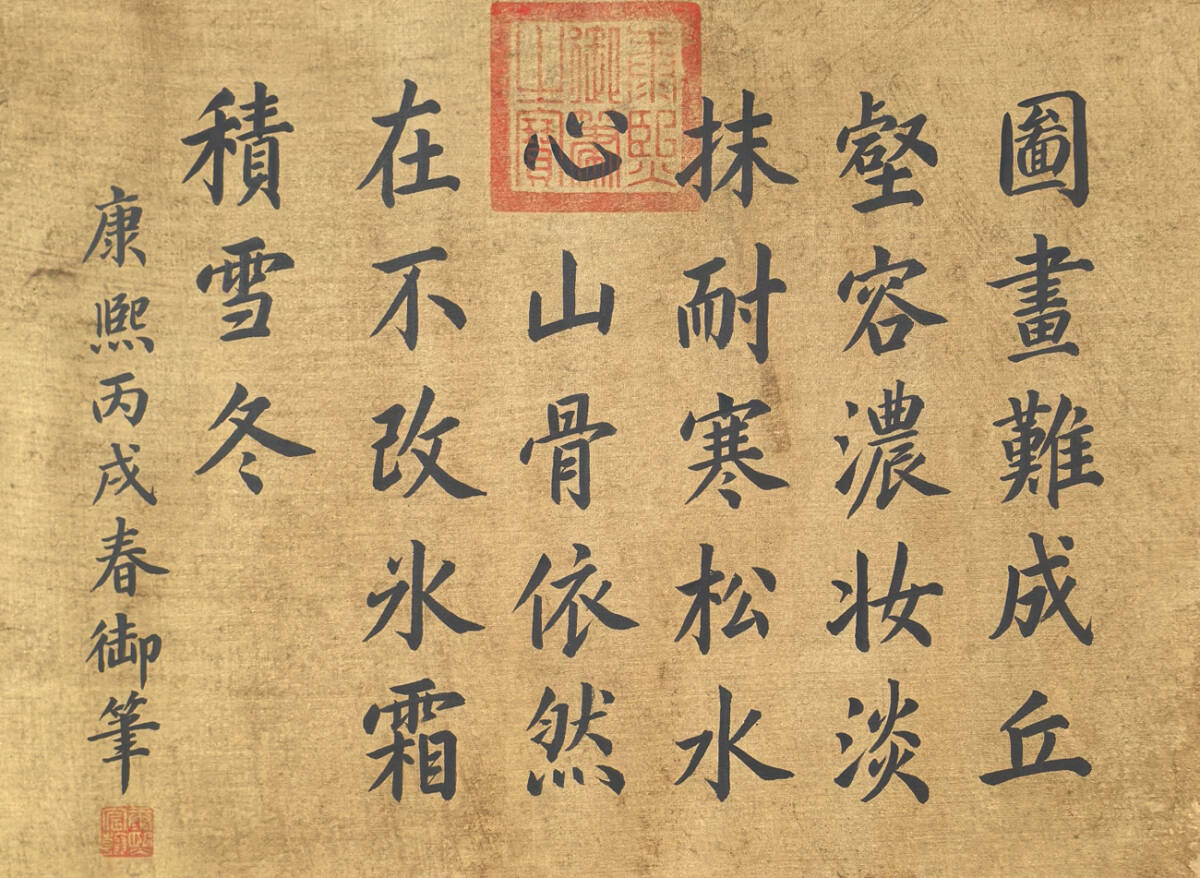 圗畫難成丘
壑容濃妝淡
抹耐寒松水
心山骨依然
在不改氷霜
積雪冬
康熙丙戌春御筆
康熙御筆之寶